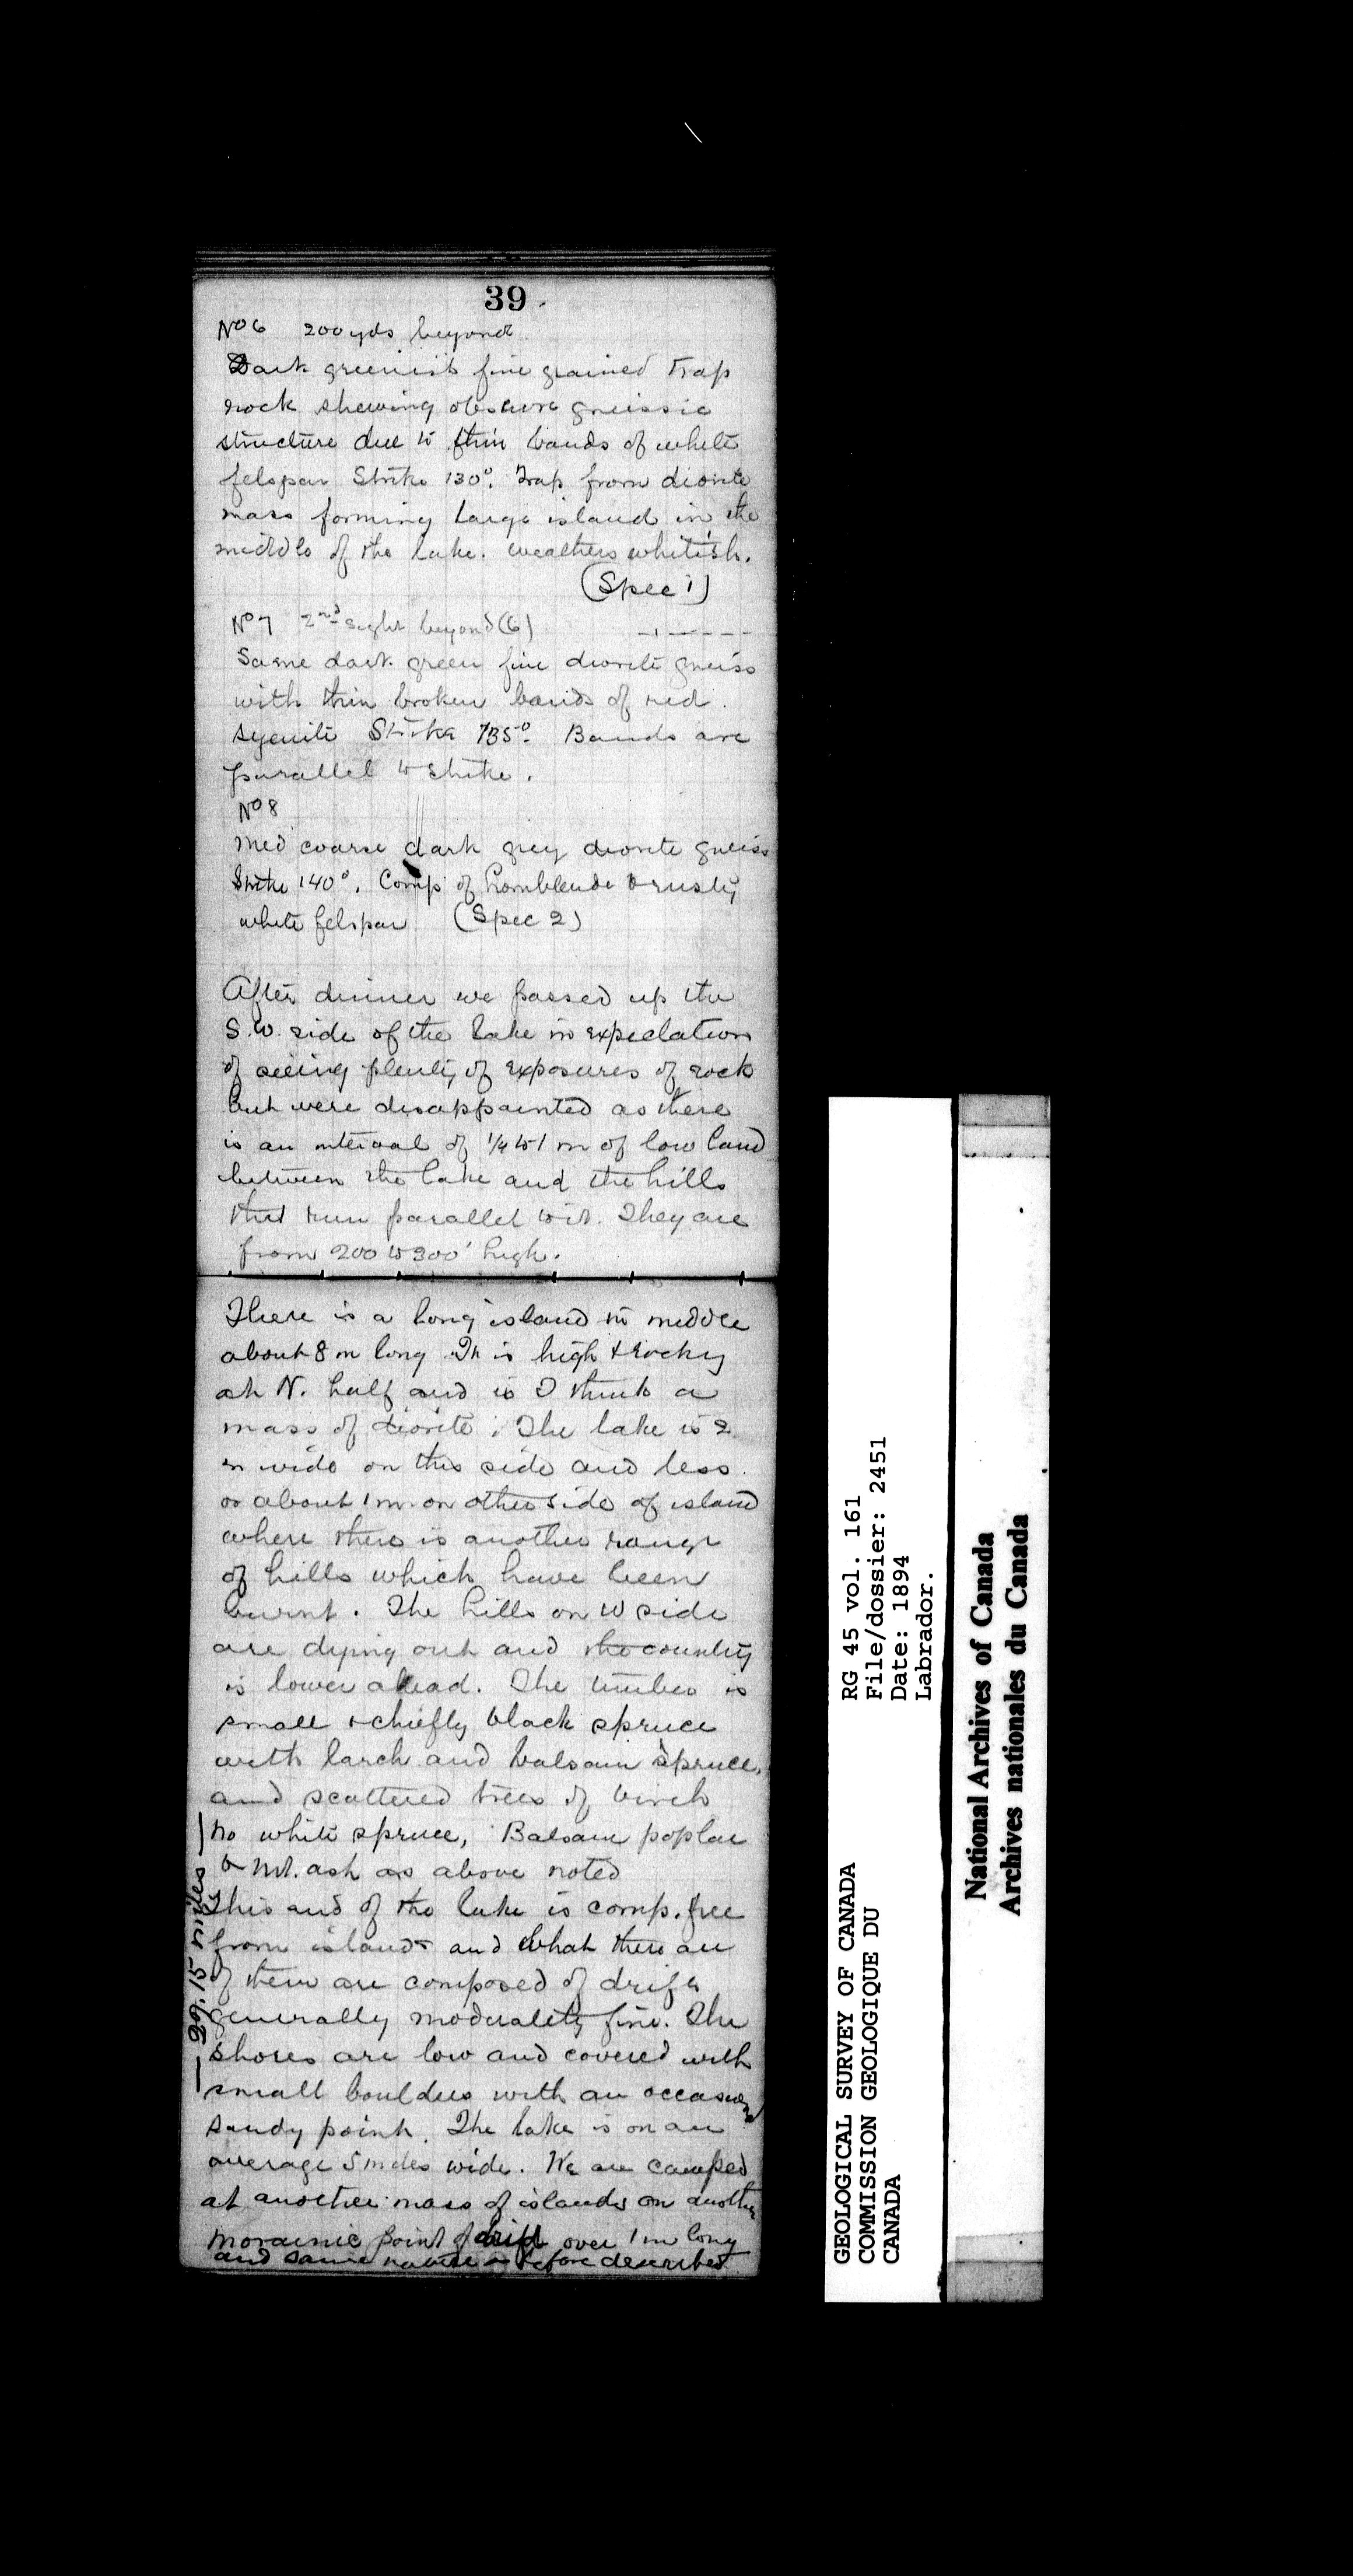 39
No 6 200 yds beyond
Dark greenish fine grained trap
rock shewing obscure gneissic
structure due to thin bands of white
felspar Strike 130°. Trap from diorite
mass forming large island in the
middle of the lake. Weathers whitish.
(Spec 1)
No 7 2nd sight beyond (6)
Same dark green fine diorite gneiss
with thin broken bands of red
syenite Strike 135°. Bands are
parallel to strike.
No 8
Med coarse dark grey diorite gneiss
Strike 140°. Comp of hornblende & rusty
white felspar (Spec 2)
After dinner we passed up the
S.W. side of the lake in expectation
of seeing plenty of exposures of rock
but were disappointed as there
is an interval of 1/4 to 1 m of low land
between the lake and the hills
that run parallel to it. They are
from 200 to 300' high.
There is a long island in middle
about 8 m long It is high & rocky
at N. half and is I think a
mass of diorite. The lake is 2
m wide on this side and less
or about 1 m on other side of island
where there is another range
of hills which have been
burnt. The hills on W side
are dying out and the country
is lower ahead. The timber is
small & chiefly black spruce
with larch and balsam spruce,
and scattered trees of birch
No white spruce, Balsam poplar
& Mt. ash as above noted
This end of the lake is comp. free
from islands and what there are
of them are composed of drift
generally moderately fine. The
shores are low and covered with
small boulders with an occasional
sandy point. The lake is on an
average 5 miles wide. We are camped
at another mass of islands on another
morainic point of drift over 1 m long
and same nature as before described
— 29.15 miles —
RG 45 vol. 161
File/dossier: 2451
Date: 1894
Labrador.
GEOLOGICAL SURVEY OF CANADA
COMMISSION GEOLOGIQUE DU
CANADA
National Archives of Canada
Archives nationales du Canada